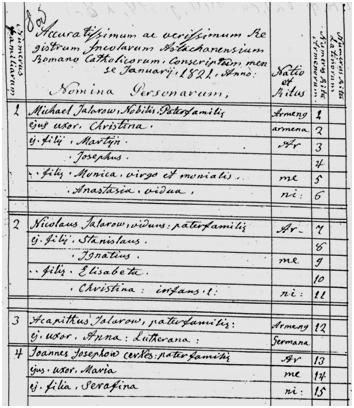 Numerus familiarum
Accuratissimum ac verissimum Re
gistrum Incolarum Astachanensium
Romano Catholicorum, conscriptum men
se Januarij, 1821, Anno:
Nomina Personarum,
Natio et Ritus
Numerus Ritus Armenorum
Numerus Ritus Latinorum
1 Michael Jalarow, Nobilis, Paterfamilię Armeng 1
ejus uxor, Christina. armena 2
ej. filij, Martyn. Ar 3
. Josephus. 4
.. filię, Monica, virgo et monialis. me 5
. Anastasia vidua, ni: 6
2 Nicolaus Jalarow, viduus: paterfamilię Ar- 7
ej. filij, Stanislaus. 8
. Ignatius. me 9
.. filię, Elisabeta. 10
. Christina: infans, 1: ni: 11
3 Acapithus Jalarow, paterfamilię: Armeng 12
ej. uxor, Anna: Lutherana: Germana
4 Joannes Josephow paterfamilię Ar 13
ejus uxor, Maria me 14
ej. filia, Serafina ni: 15